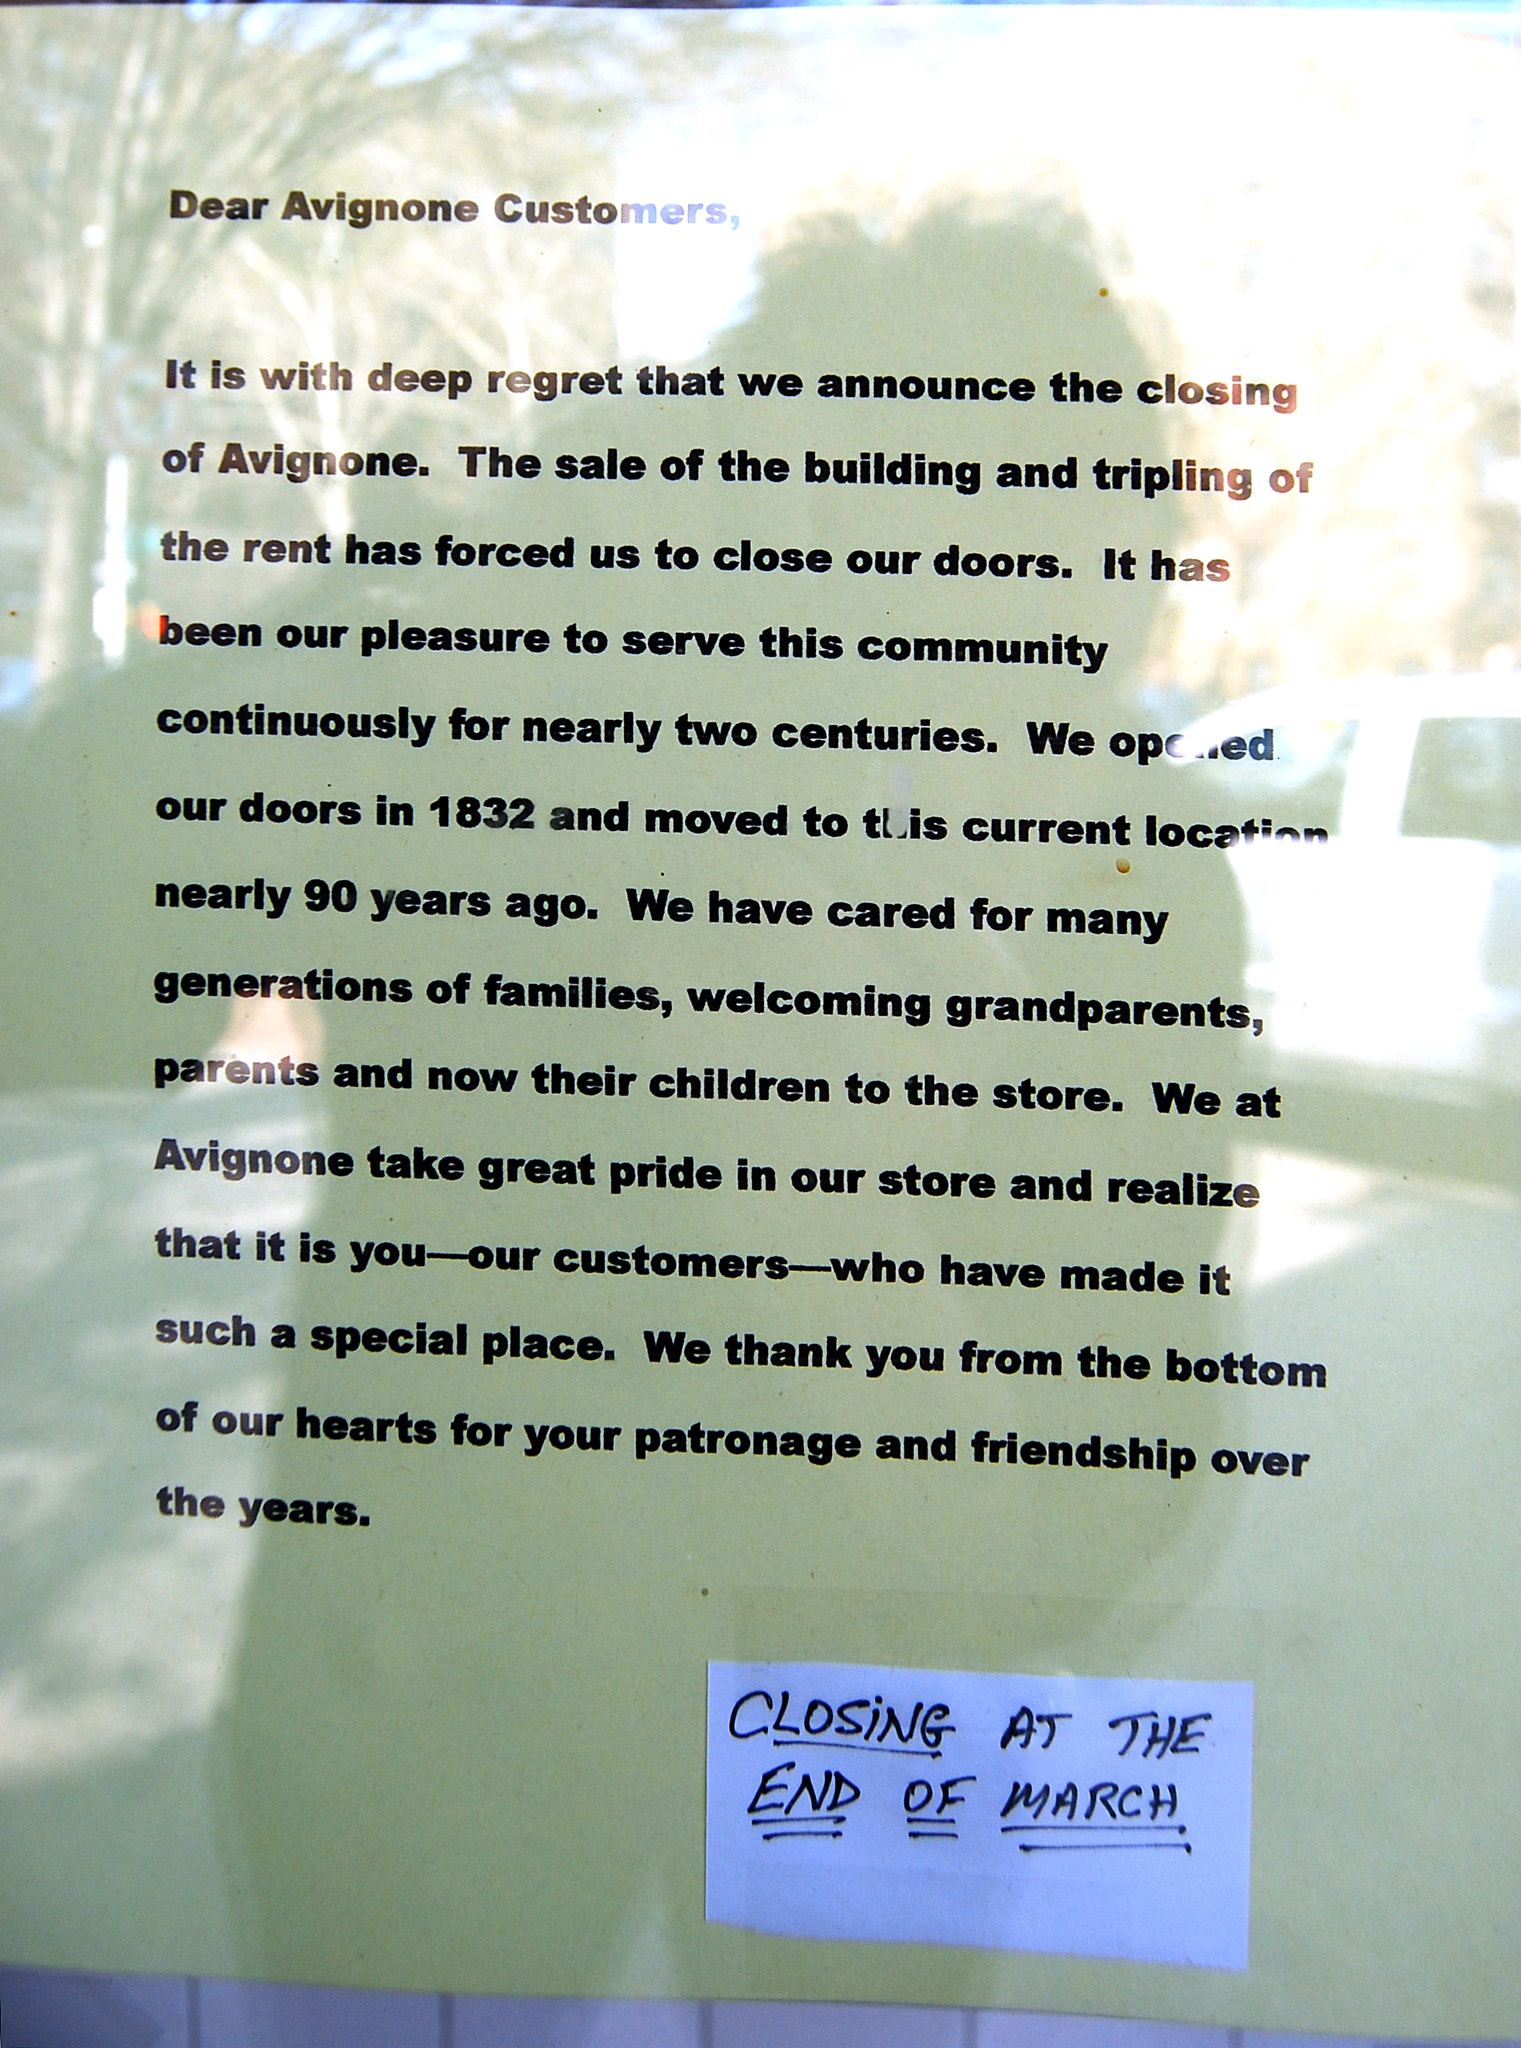 Dear Avignone Customers,
It is with deep regret that we announce the closing
of Avignone. The sale of the building and tripling of
the rent has forced us to close our doors. It has
been our pleasure to serve this community
continuously for nearly two centuries. We opened
our doors in 1832 and moved to this current location
nearly 90 years ago. We have cared for many
generations of families, welcoming grandparents,
parents and now their children to the store. We at
Avignone take great pride in our store and realize
that it is you—our customers—who have made it
such a special place. We thank you from the bottom
of our hearts for your patronage and friendship over
the years.
CLOSING AT THE
END OF MARCH